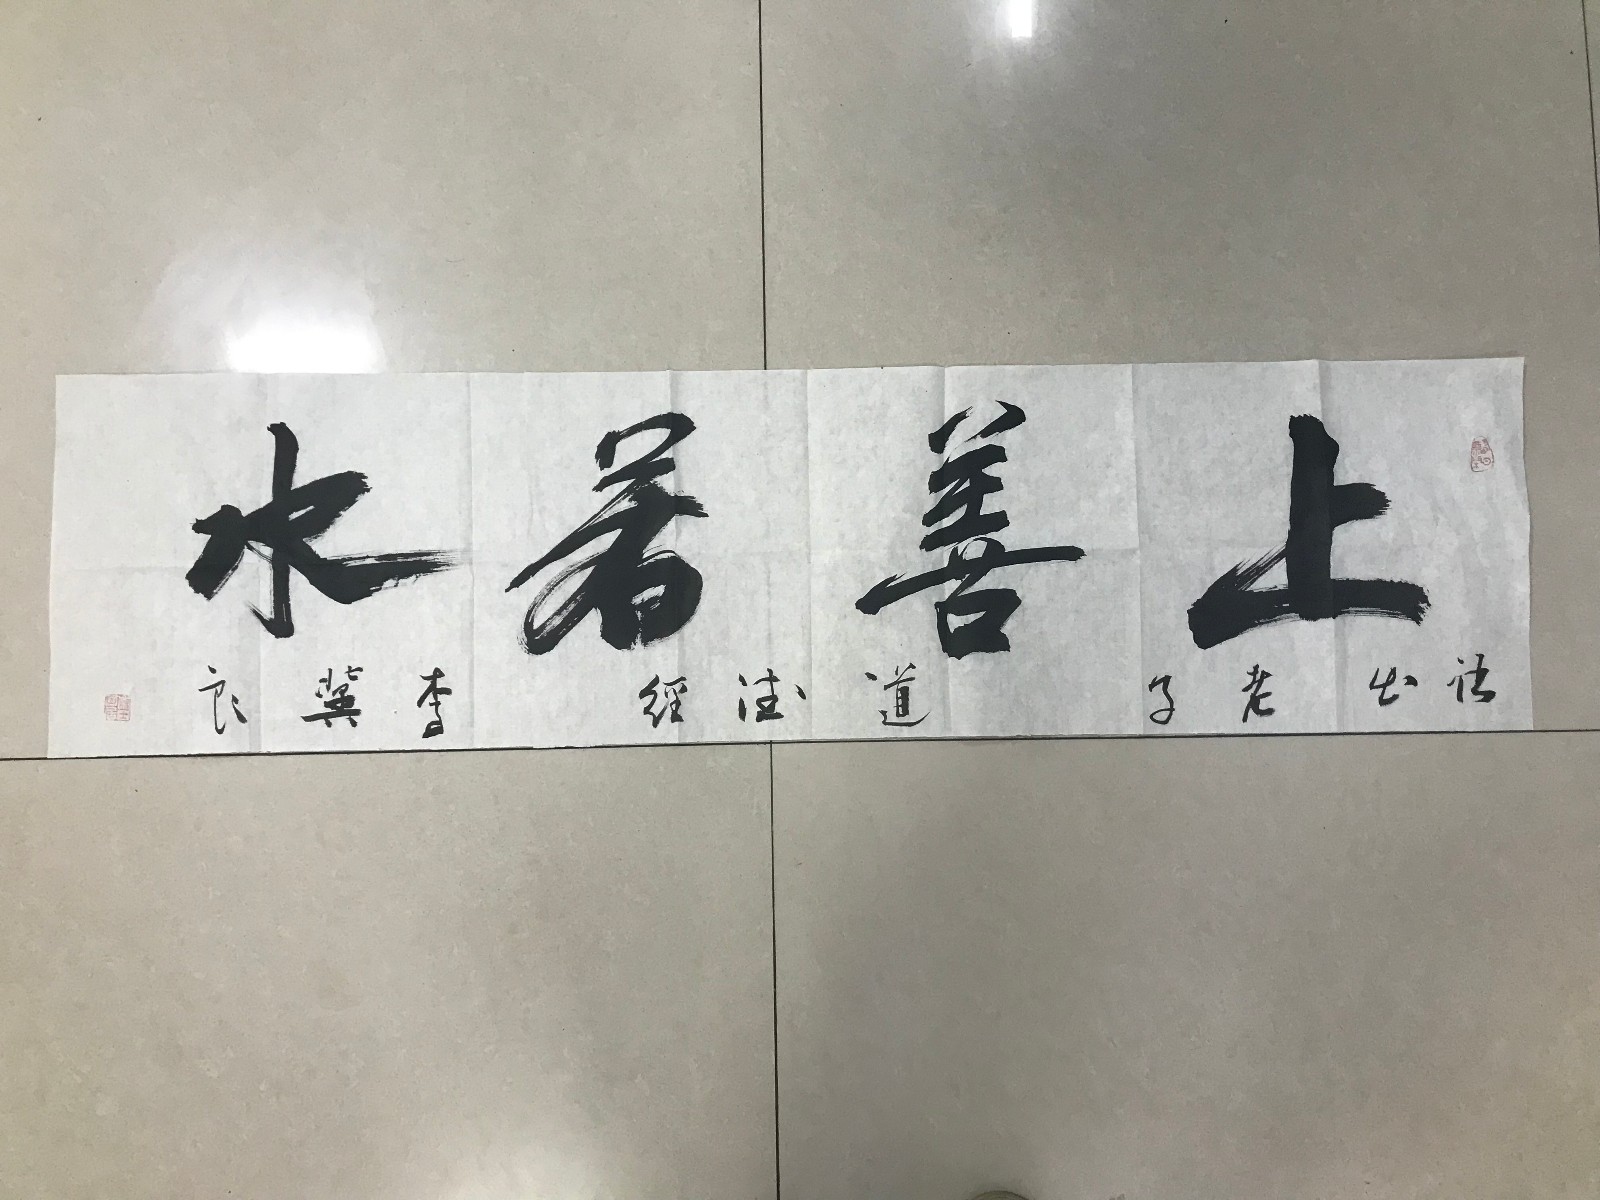 上善若水
语出老子道德經李冀良